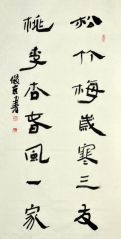 松竹梅歲寒三友
桃李杏春風一家